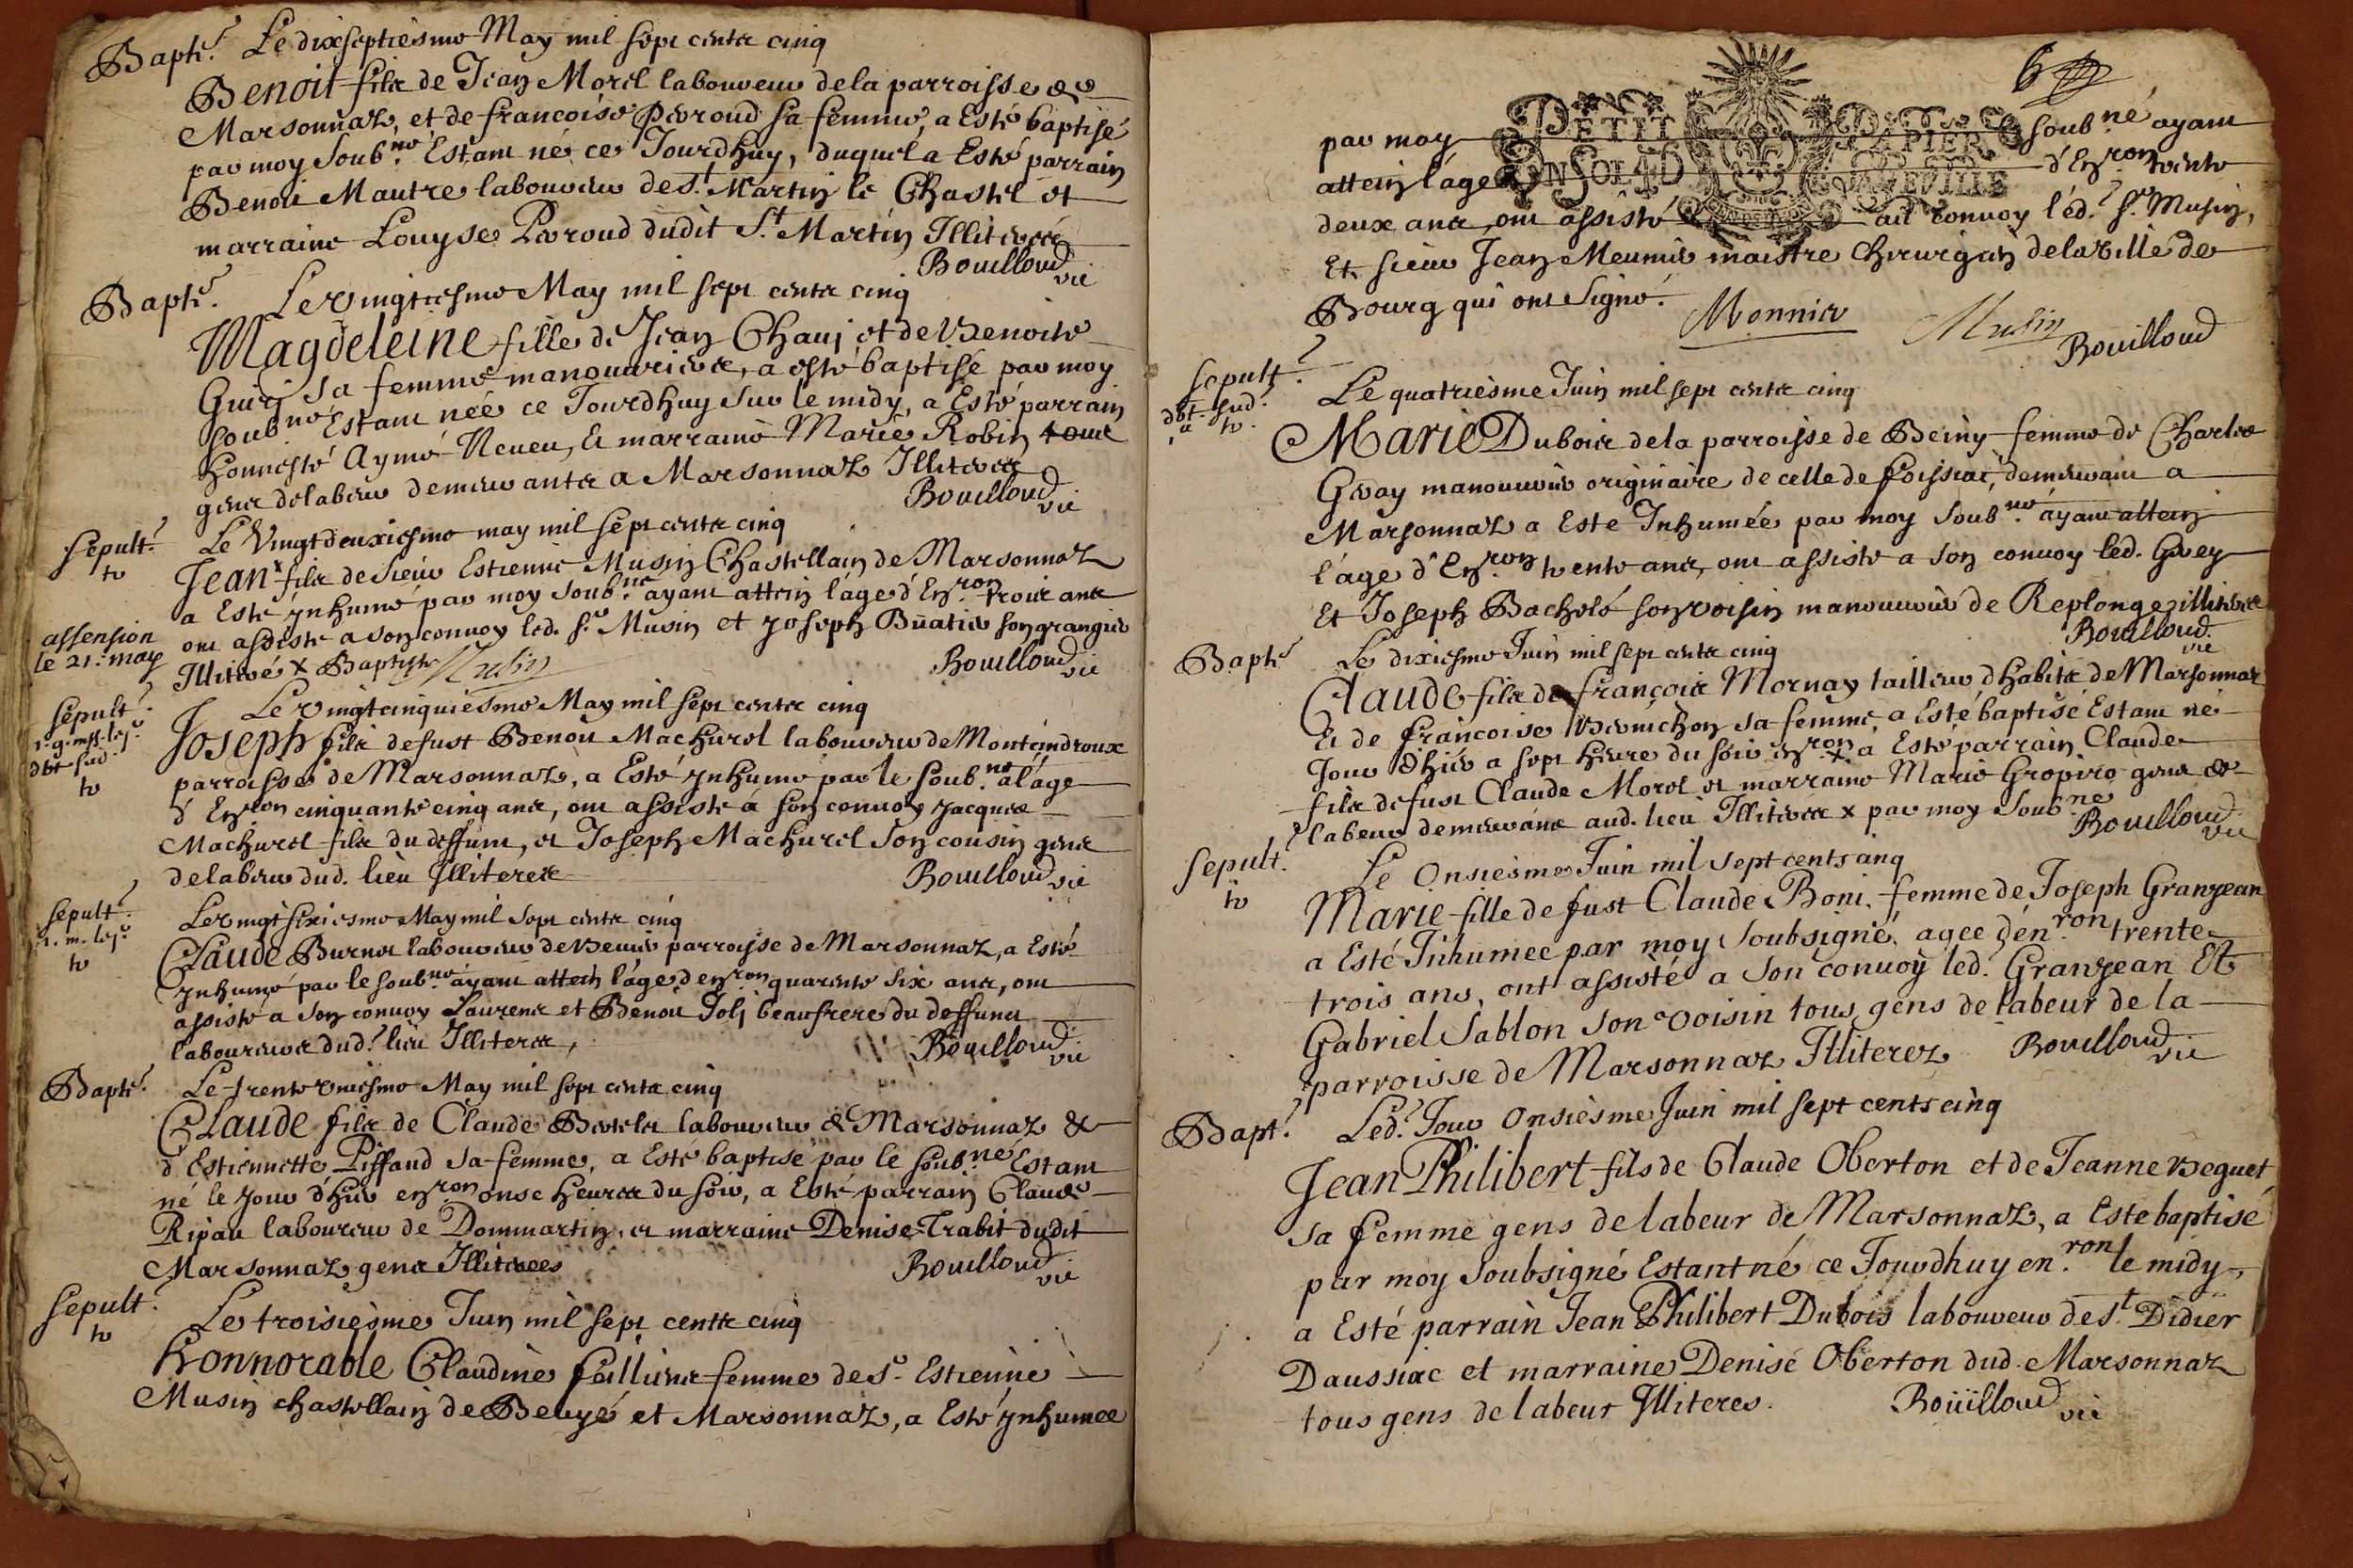 Bapt. Le dixseptiesme May mil sept cents cinq
Benoit fils de Jean Morel laboureur de la parroisse de
Marsonnaz, et de francoise Perroud sa femme, a Esté baptisé
par moy soub.né Estant né ce Jourdhuy, duquel a Esté parrain
Benoit Mautre laboureur de St. Martin le Chastel et
marraine Louyse Perroud dudit St. Martin Illiterés
Bouilloud vic
Bapt. Le vingtiesme May mil sept cents cinq
Magdeleine fille de Jean Chanj et de Benoite
sa femme manouvriers, a esté baptisé par moy
soub.né Estant née ce Jourdhuy sur le midy, a Esté parrain
honneste Aymé Neveu, Et marraine Marie Robin tous
gens delabeur demeurants a Marsonnaz Illiteres
Bouilloud vic
sepult. Le Vingtdeuxiesme may mil sept cents cinq
Jean x fils de sieur Estienne Musin Chastellain de Marsonnaz
a Esté ynhumé par moy soub.né ayant attein l'age d'En.ron trois ans
assension
le 21. may
ont assisté a son convoy led. sr. Musin et Joseph Buatier son granger
Illiteré x Baptiste Musin Bouilloud vic
sepult. Le vingtcinquiesme May mil sept cents cinq
Joseph fils de fust Benoit Machurel laboureur de Montcindroux
parroisse de Marsonnaz, a Esté ynhumé par le soub.né a l'age
d'En.ron cinquante cinq ans, ont assisté a son convoy Jacques
Machurel fils du deffunt, et Joseph Machurel son cousin gens
delabeur dud. lieu Illiteres Bouilloud vic
sepult. Le vingt sixiesme May mil sept cents cinq
Claude Burnet laboureur de parroisse de Marsonnaz, a Esté
ynhumé par le soub.né ayant attein l'age d'en.ron quarente six ans, ont
assisté a son convoy Laurent et Benoit Jolj beaufrere du deffunct
laboureurs dud. lieu Illiteres, Bouilloud vic
Bapt. Le trente uniesme May mil sept cents cinq
Claude fils de Claude laboureur de Marsonnaz &
d'Estiennette Piffaud sa femme, a Esté baptisé par le soub.né Estant
né le jour d'hier en.ron onse heures du soir, a Esté parrain Claude
Ripau laboureur de Dommartin, et marraine Denise Trabit dudit
Marsonnaz gens Illiterees Bouilloud vic
sepult. Le troisiesme Juin mil sept cents cinq
honnorable Claudine femme de Sr. Estienne
Musin chastellain de Beuyé et Marsonnaz, a Esté ynhumee
6
PETIT PAPIER
par moy soub.né ayant
attein l'age d'En.ron trente
deux ans, ont assisté au convoy led. sr. Musin,
Et sieur Jean Meunier maistre Chirurgien de la ville de
Bourg qui ont signé.
Monnier Musin Bouilloud
sepult. Le quatriesme Juin mil sept cents cinq
Marie Dubois de la parroisse de Beiny femme de Charles
Gvay manouvrier originaire de celle de foissiat, demeurant a
Marsonnaz a Esté Inhumée par moy soub.né ayant attein
l'age d'En.ron trente ans, ont assisté a son convoy led. Gvey
Et Joseph son voisin manouvrier de Replonge illiteres
Bouilloud vic
Bapt. Le dixiesme Juin mil sept cents cinq
Claude fils de françois Mornay tailleur d'habits de Marsonnaz
Et de francoise sa femme a Esté baptisé Estant né
Jour d'hier a sept heures du soir en.ron x a Esté parrain Claude
fils de fust Claude Morel et marraine Marie Gropiro gens de
labeur demeurans aud. lieu Illiteres x par moy soub.né
Bouilloud vic
sepult. Le Onsiesme Juin mil sept cents cinq
Marie fille de fust Claude Boni femme de Joseph Granjean
a Esté Inhumee par moy soubsigné, agee d'en.ron trente
trois ans, ont assisté a son convoy led. Granjean Et
Gabriel Sablon son voisin tous gens de labeur de la
parroisse de Marsonnaz Illiterez Bouilloud vic
Bapt. Led. Jour Onsiesme Juin mil sept cents cinq
Jean Philibert fils de Claude Oberton et de Jeanne Beguet
sa femme gens de labeur de Marsonnaz, a Esté baptisé
par moy soubsigné Estant né ce Jourdhuy en.ron le midy,
a Esté parrain Jean Philibert Dubois laboureur de St. Didier
Daussiac et marraine Denise Oberton dud. Marsonnaz
tous gens de labeur Illiteres. Bouilloud vic